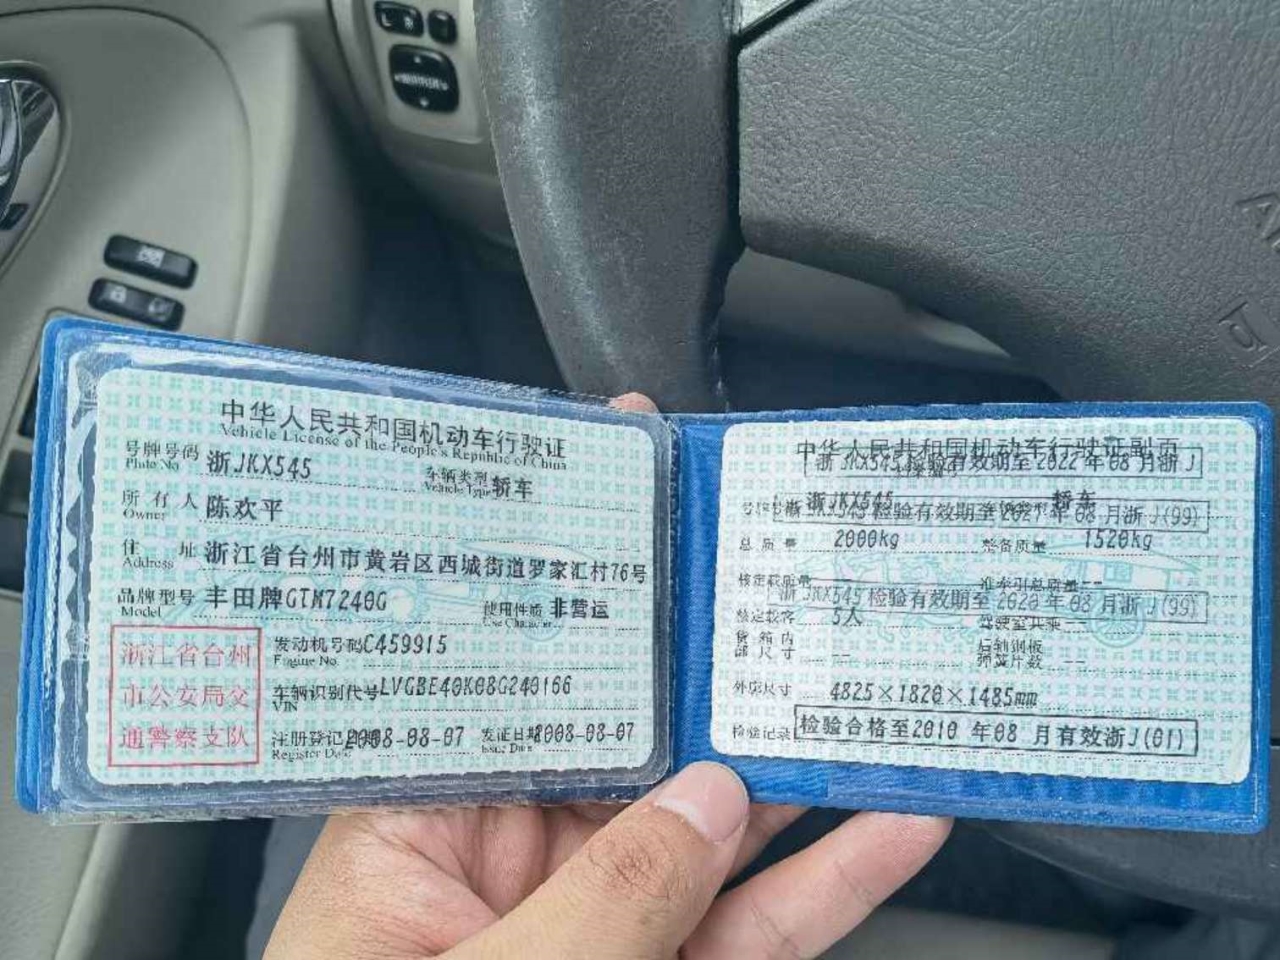 中华人民共和国机动车行驶证
Vehicle License of the People's Republic of China
号牌号码 浙JKX545 车辆类型 轿车
Plate No. Vehicle Type
所有人 陈欢平
Owner
住址 浙江省台州市黄岩区西城街道罗家汇村76号
Address
品牌型号 丰田牌GTM7240G 使用性质 非营运
Model Use Character
浙江省台州
市公安局交
通警察支队
发动机号码 C459915
Engine No.
车辆识别代号 LVGBE40K08G240166
VIN
注册登记日期 2008-08-07 发证日期 2008-08-07
Register Date Issue Date
中华人民共和国机动车行驶证副页
浙JKX545 检验有效期至2022年08月浙J
号牌号码 浙JKX545 轿车
浙JKX545 检验有效期至2021年08月浙J(99)
总质量 2000kg 整备质量 1520kg
核定载质量 -- 准牵引总质量 --
浙JKX545 检验有效期至2020年08月浙J(99)
核定载客 5人 驾驶室共乘 --
货箱内部尺寸 -- 后轴钢板弹簧片数 --
外廓尺寸 4825×1820×1485mm
检验记录 检验合格至2010年08月有效浙J(01)